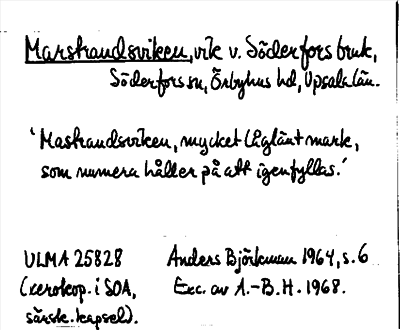 Marstrandsviken, vik v. Söderfors bruk,
Söderfors sn, Örbyhus hd, Upsala län.
'Mastrandsviken, mycket låglänt mark,
som numera håller på att igenfyllas.'
ULMA 25828 Anders Björkman 1964, s. 6
(xerokop. i SOA, Exc. av A.-B. H. 1968.
särsk. kapsel).